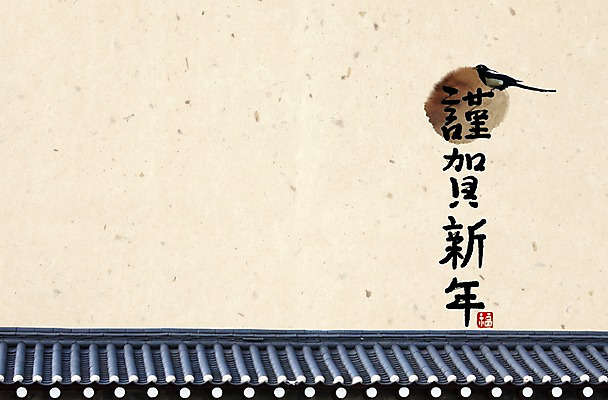 謹賀新年
福